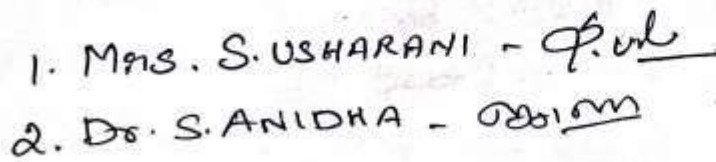 1. Mrs. S. USHARANI -
2. Dr. S. ANIDHA -